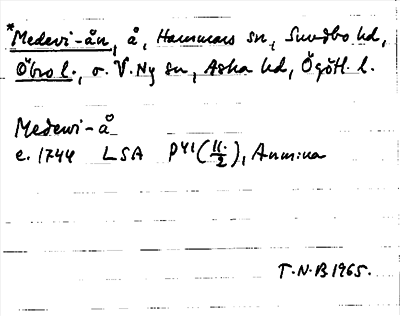 *Medevi-ån, å, Hammars sn, Sundbo hd,
Öbro l., o. V. Ny sn, Aska hd, Ögötl. l.
Medewi-å
c. 1744 LSA P41 (11:/2),
T.N.B 1965.